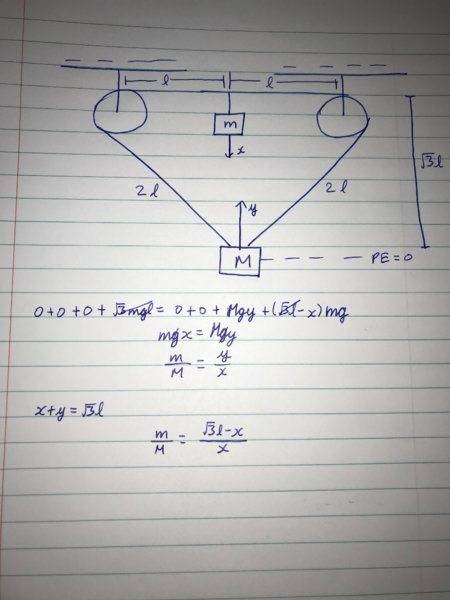 l l
m
x
√3l
2l 2l
y
M PE=0
0+0+0+√3mgl = 0+0+Mgy+(√3l-x)mg
mgx = Mgy
m/M = y/x
x+y=√3l
m/M = √3l-x/x